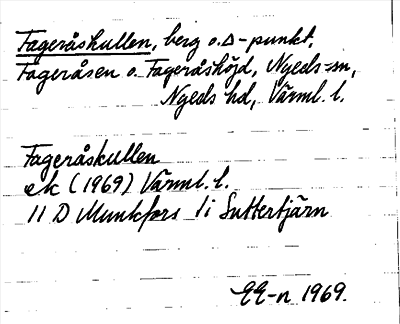 Fageråskullen, berg o. ∆-punkt,
Fageråsen o. Fageråshöjd, Nyeds sn,
Nyeds hd, Värml. l.
Fageråskullen
ek (1969) Värml. l.
11 D Munkfors 1i Suttertjärn
EE-n 1969.